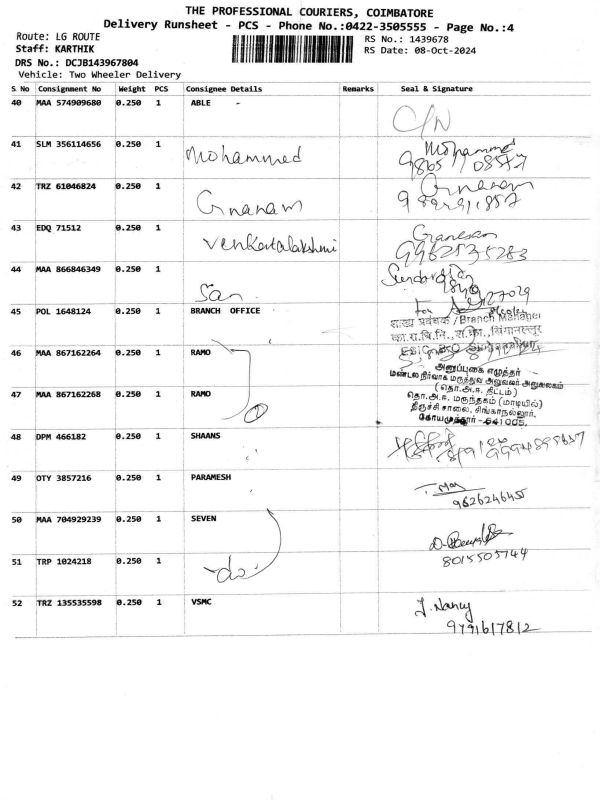 THE PROFESSIONAL COURIERS, COIMBATORE
Delivery Runsheet - PCS - Phone No.:0422-3505555 - Page No.:4
Route: LG ROUTE
RS No.: 1439678
Staff: KARTHIK
RS Date: 08-Oct-2024
DRS No.: DCJB143967804
Vehicle: Two Wheeler Delivery
S No Consignment No Weight PCS Consignee Details Remarks Seal & Signature
40 MAA 574909680 0.250 1 ABLE C/N
41 SLM 356114656 0.250 1 Mohammed Mohammed
42 TRZ 61046824 0.250 1 Gnanam Gnanam
43 EDQ 71512 0.250 1 Venkatalakshmi Ganesan
9962535283
44 MAA 866846349 0.250 1 San
45 POL 1648124 0.250 1 BRANCH OFFICE For
शाखा प्रबंधक / Branch Manager
46 MAA 867162264 0.250 1 RAMO
அனுப்புகை எழுத்தர்
மண்டல நிர்வாக மருத்துவ அலுவலர் அலுவலகம்
47 MAA 867162268 0.250 1 RAMO
(தொ.அ.ஈ. திட்டம்)
தொ.அ.ஈ. மருந்தகம் (மாடியில்)
திருச்சி சாலை, சிங்காநல்லூர்,
கோயமுத்தூர் - 641005.
48 DPM 466182 0.250 1 SHAANS
49 OTY 3857216 0.250 1 PARAMESH
9626246455
50 MAA 704929239 0.250 1 SEVEN
8015505744
51 TRP 1024218 0.250 1 -do-
52 TRZ 135535598 0.250 1 VSMC J. Nancy
9791617812